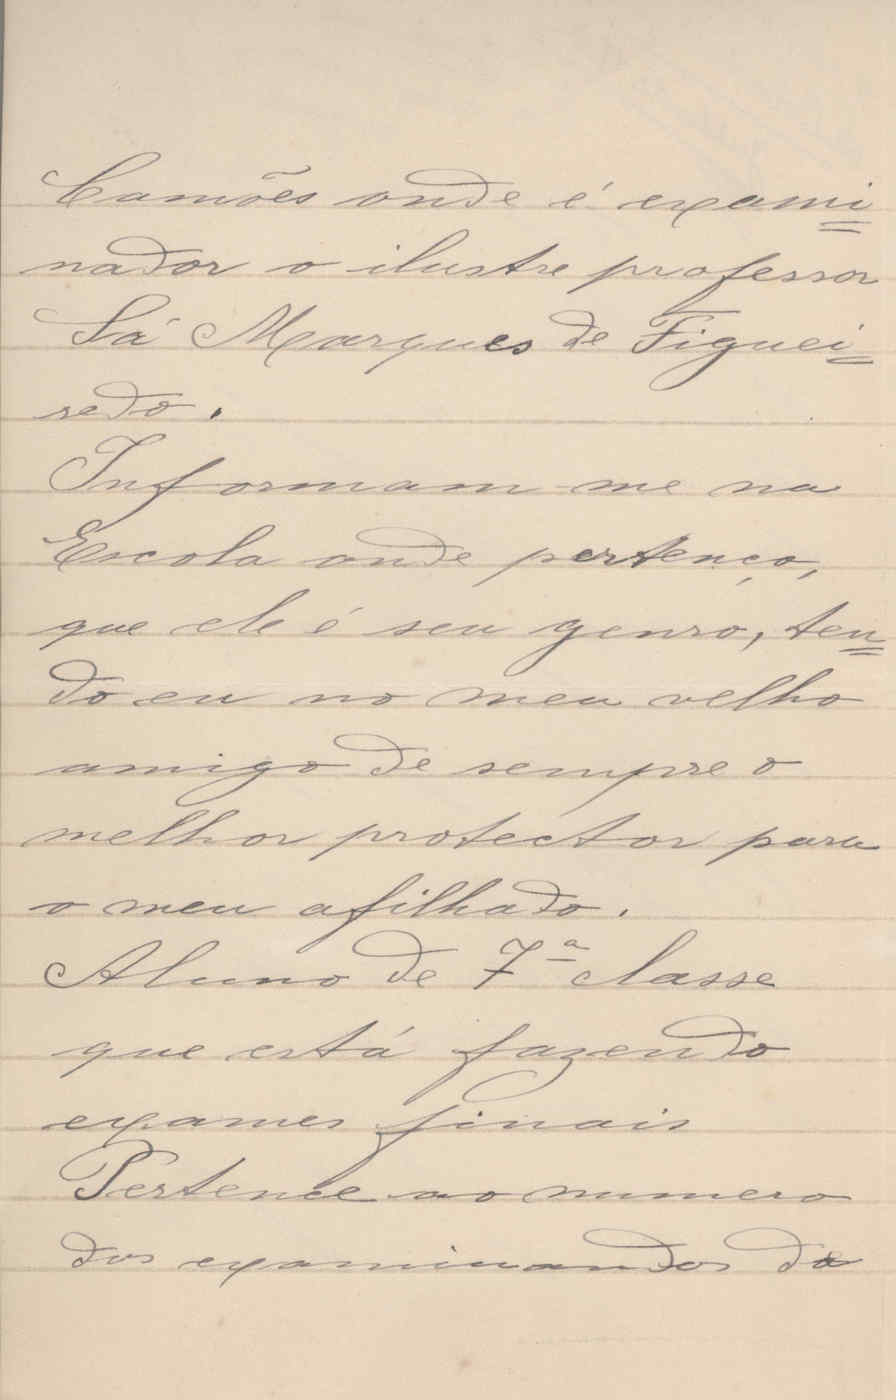 Camões onde é exami=
nador o ilustre professor
Sá Marques de Figuei=
redo.
Informam me na
Escola onde pertenço,
que ele é seu genro, ten=
do eu no meu velho
amigo de sempre o
melhor protector para
o meu afilhado.
Aluno de 7ª classe
que está fazendo
exames finais
Pertence ao numero
dos examinandos do